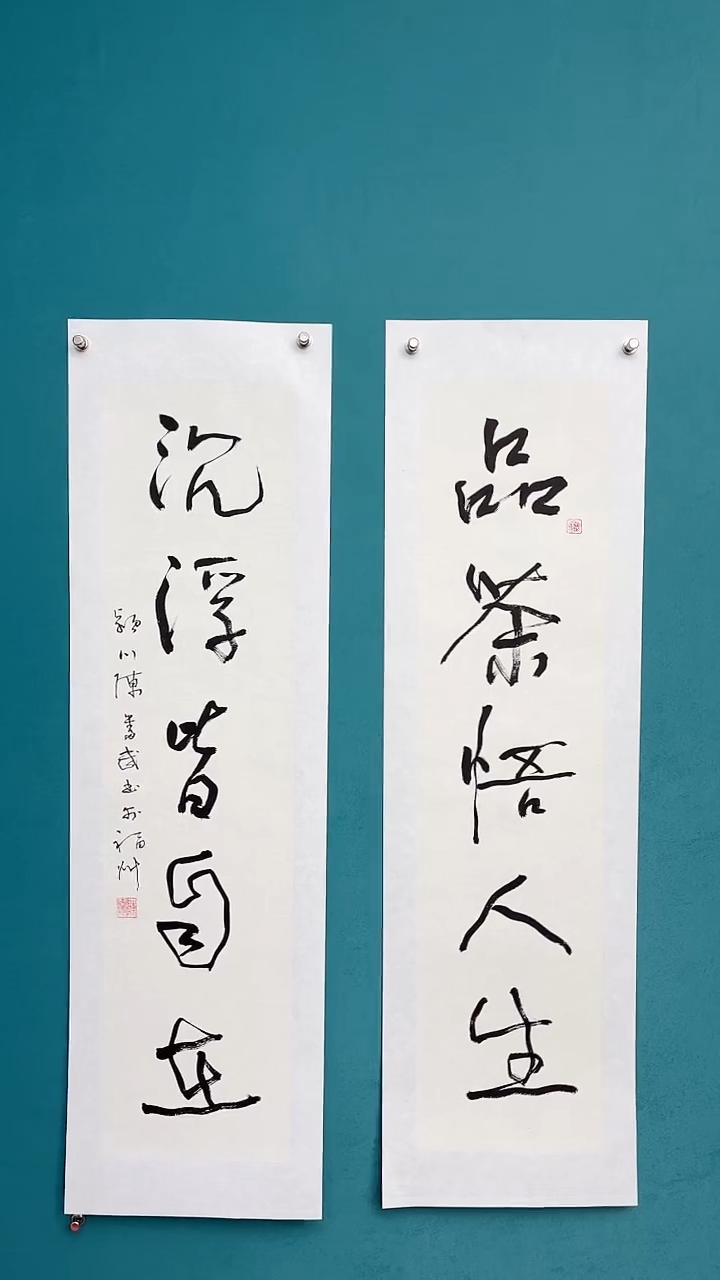 品茶悟人生
沉浮皆自在
颖川陈书于福州